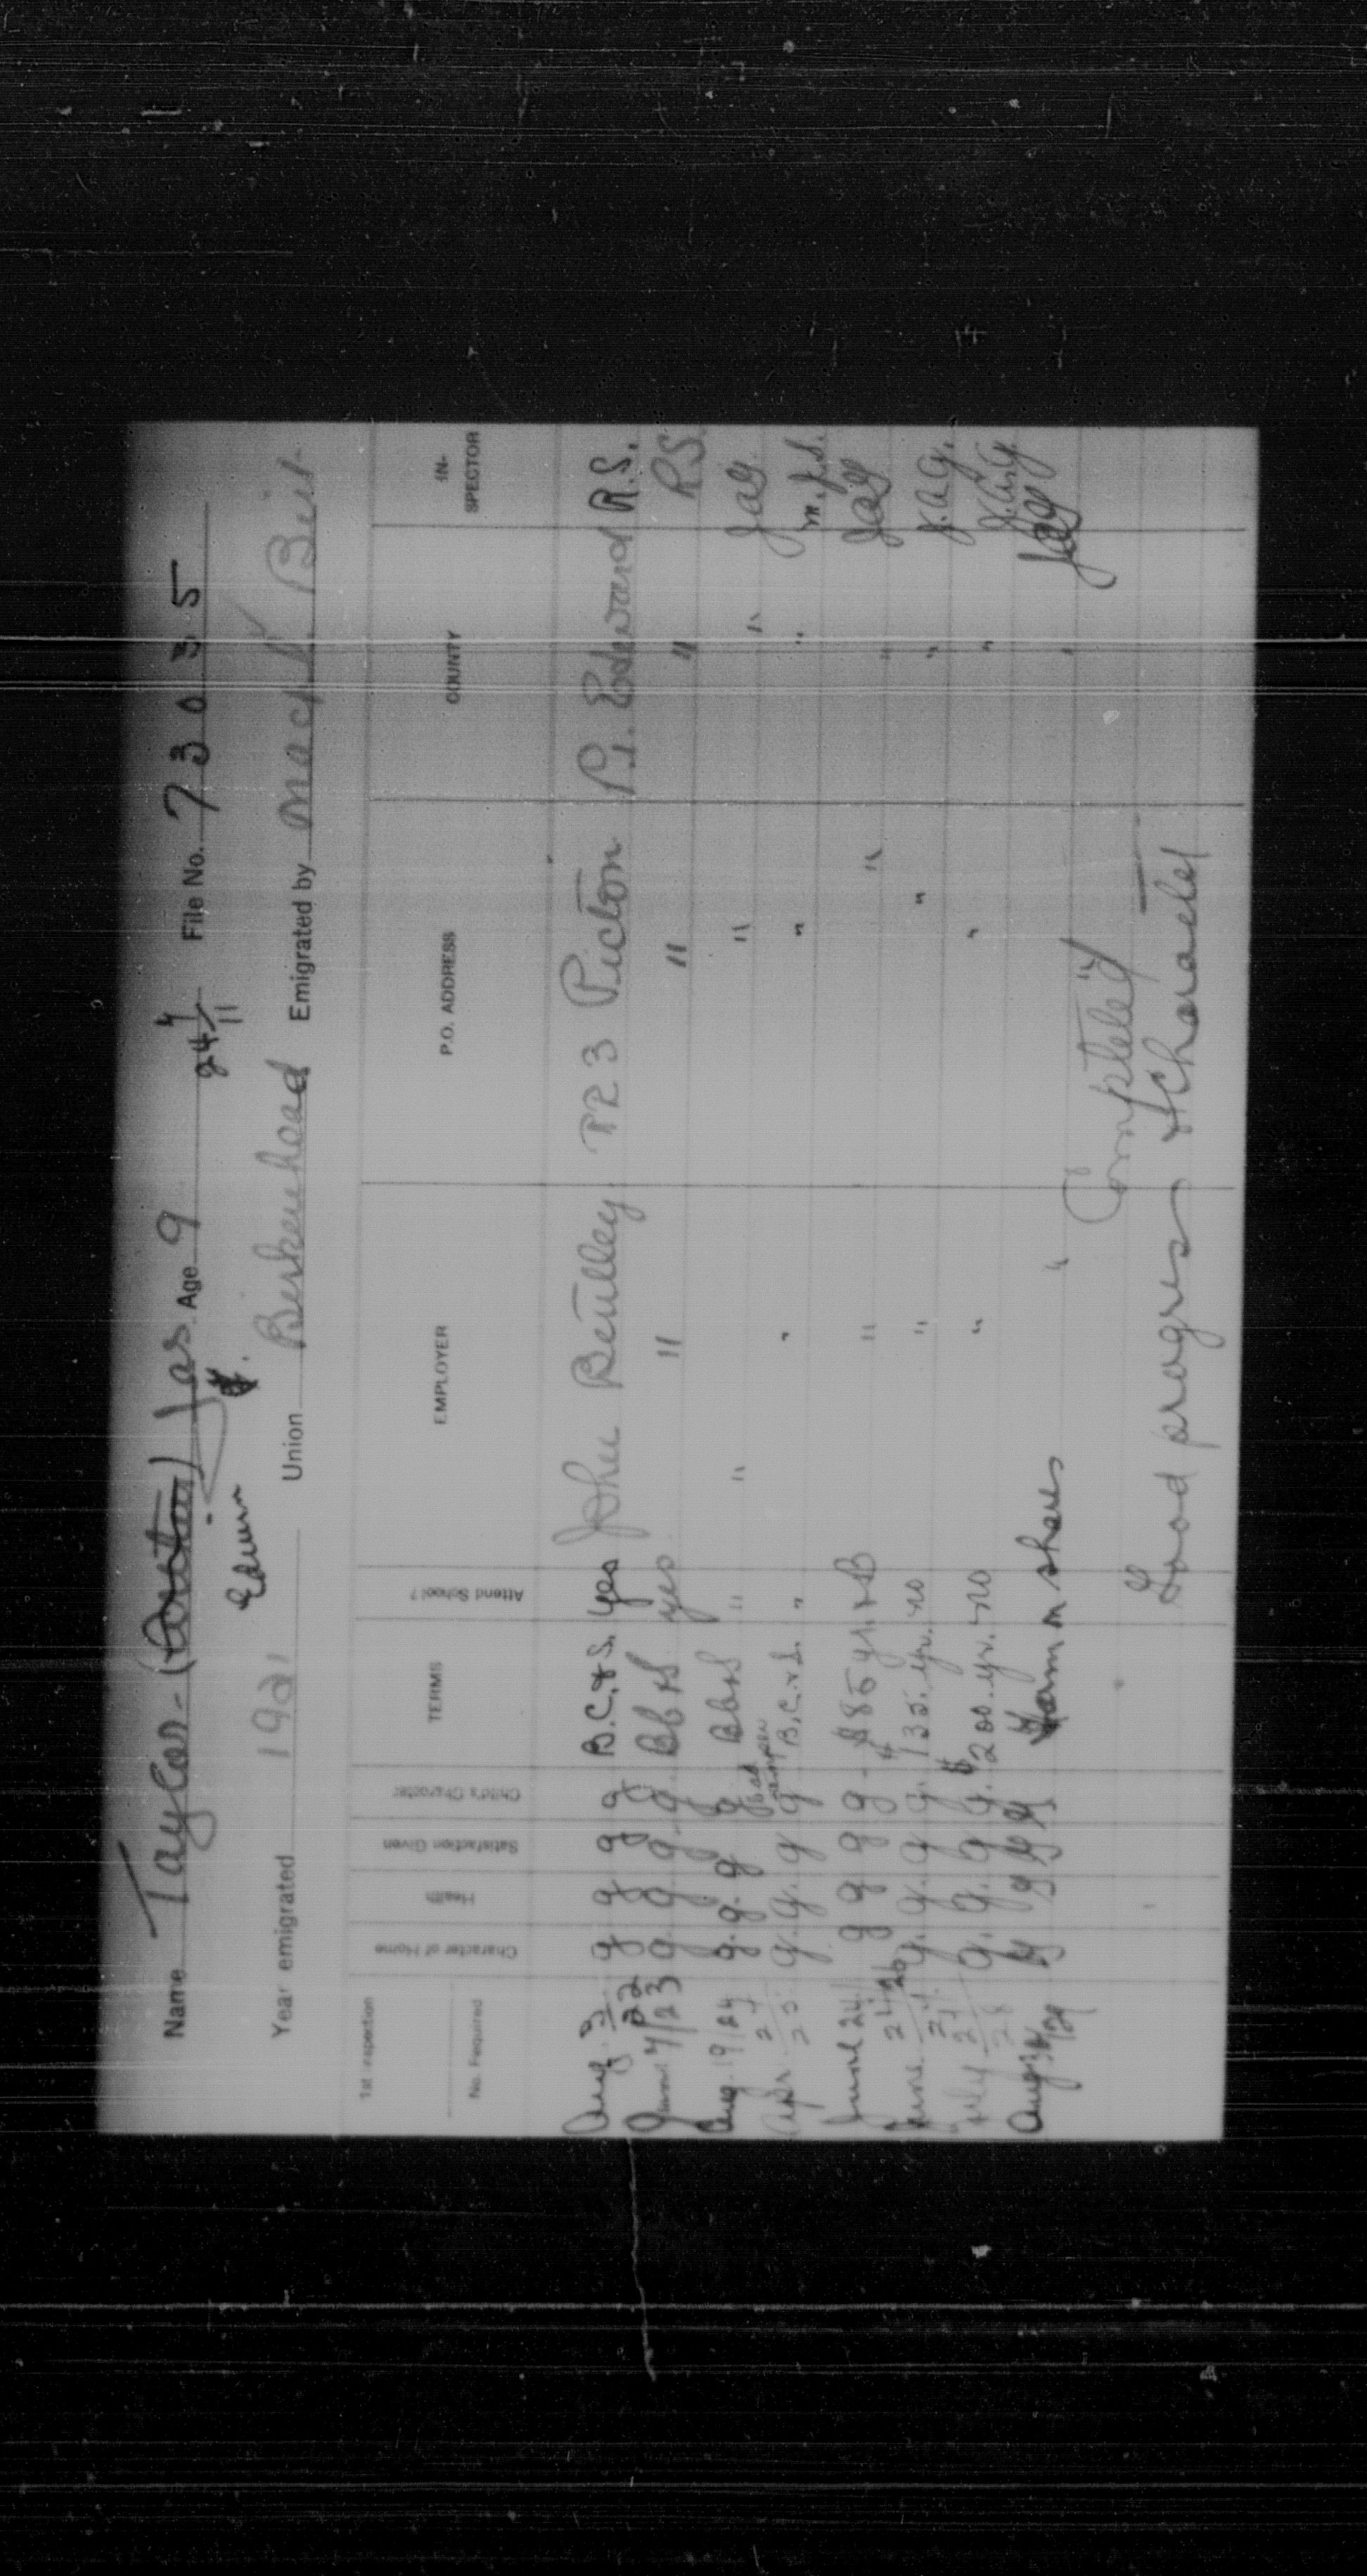 Name Taylor - Jas. Age 9 File No. 73035
Edwin 24/11
Year emigrated 1921 Union Birkenhead Emigrated by
1st inspection
No. Required
Character of Home
Health
Satisfaction Given
Child's Character
TERMS
Attend School?
EMPLOYER
P.O. ADDRESS
COUNTY
IN-
SPECTOR
Aug 22 g g g g B.C. & S. yes John R 3 Picton Pr. Edward R.S.
4/23 g. g. g. g. B C & S yes " " " R.S.
Aug. 19/24 g. g. g g B C & S " " " " JAG
bad temper
Apr. 25 g. g. g g B. C. & S. " " " " M.J.S.
June g g g g - $85 yr. & B " " " JAG
June g. g. g. g. $135. yr. no " " " J.A.G.
July g. g. g. g. $200 yr. no " " " J.A.G.
Aug g g g g Farm on shares " " JAG
Completed
Good progress & Character